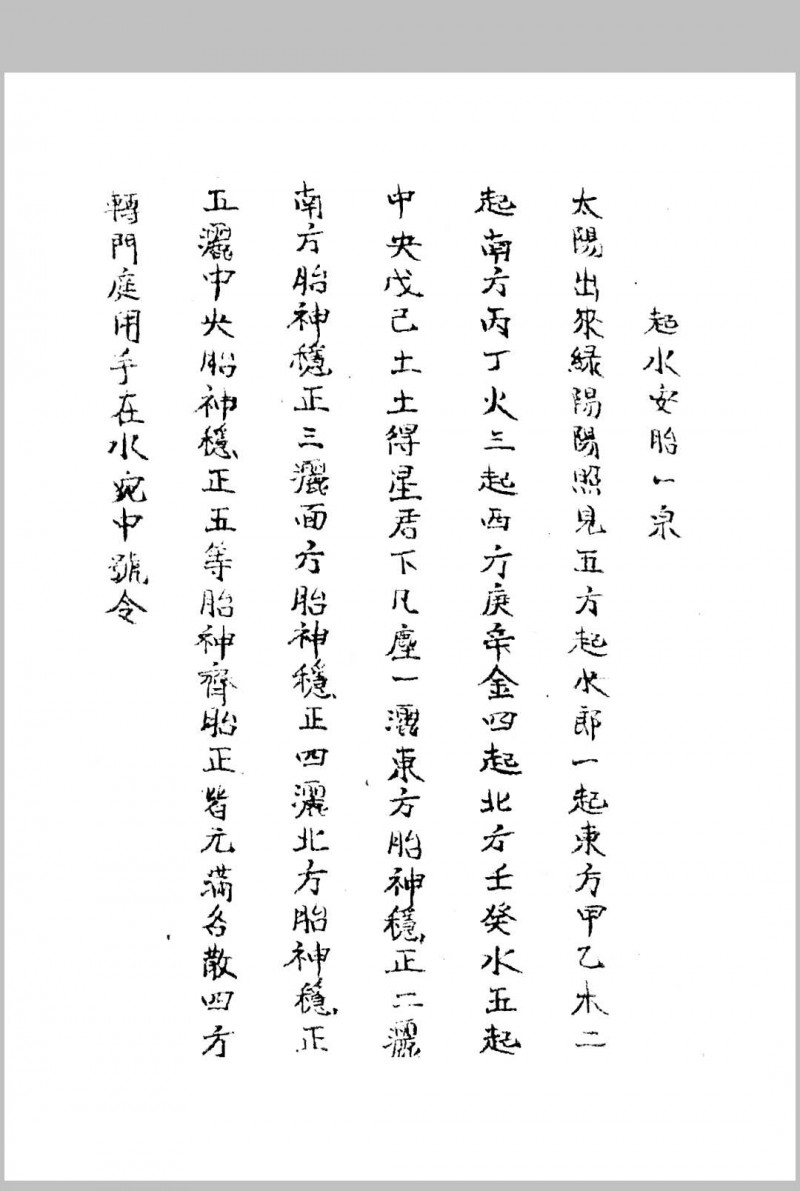 起水安胎一泉
太陽出來緑陽陽照見五方起水郎一起東方甲乙木二
起南方丙丁火三起西方庚辛金四起北方壬癸水五起
中央戊己土土得星君下凡塵一灑東方胎神穩正二灑
南方胎神穩正三灑面方胎神穩正四灑北方胎神穩正
五灑中央胎神穩正五等胎神齊胎正皆元滿各散四方
轉門庭用手在水宛中號令